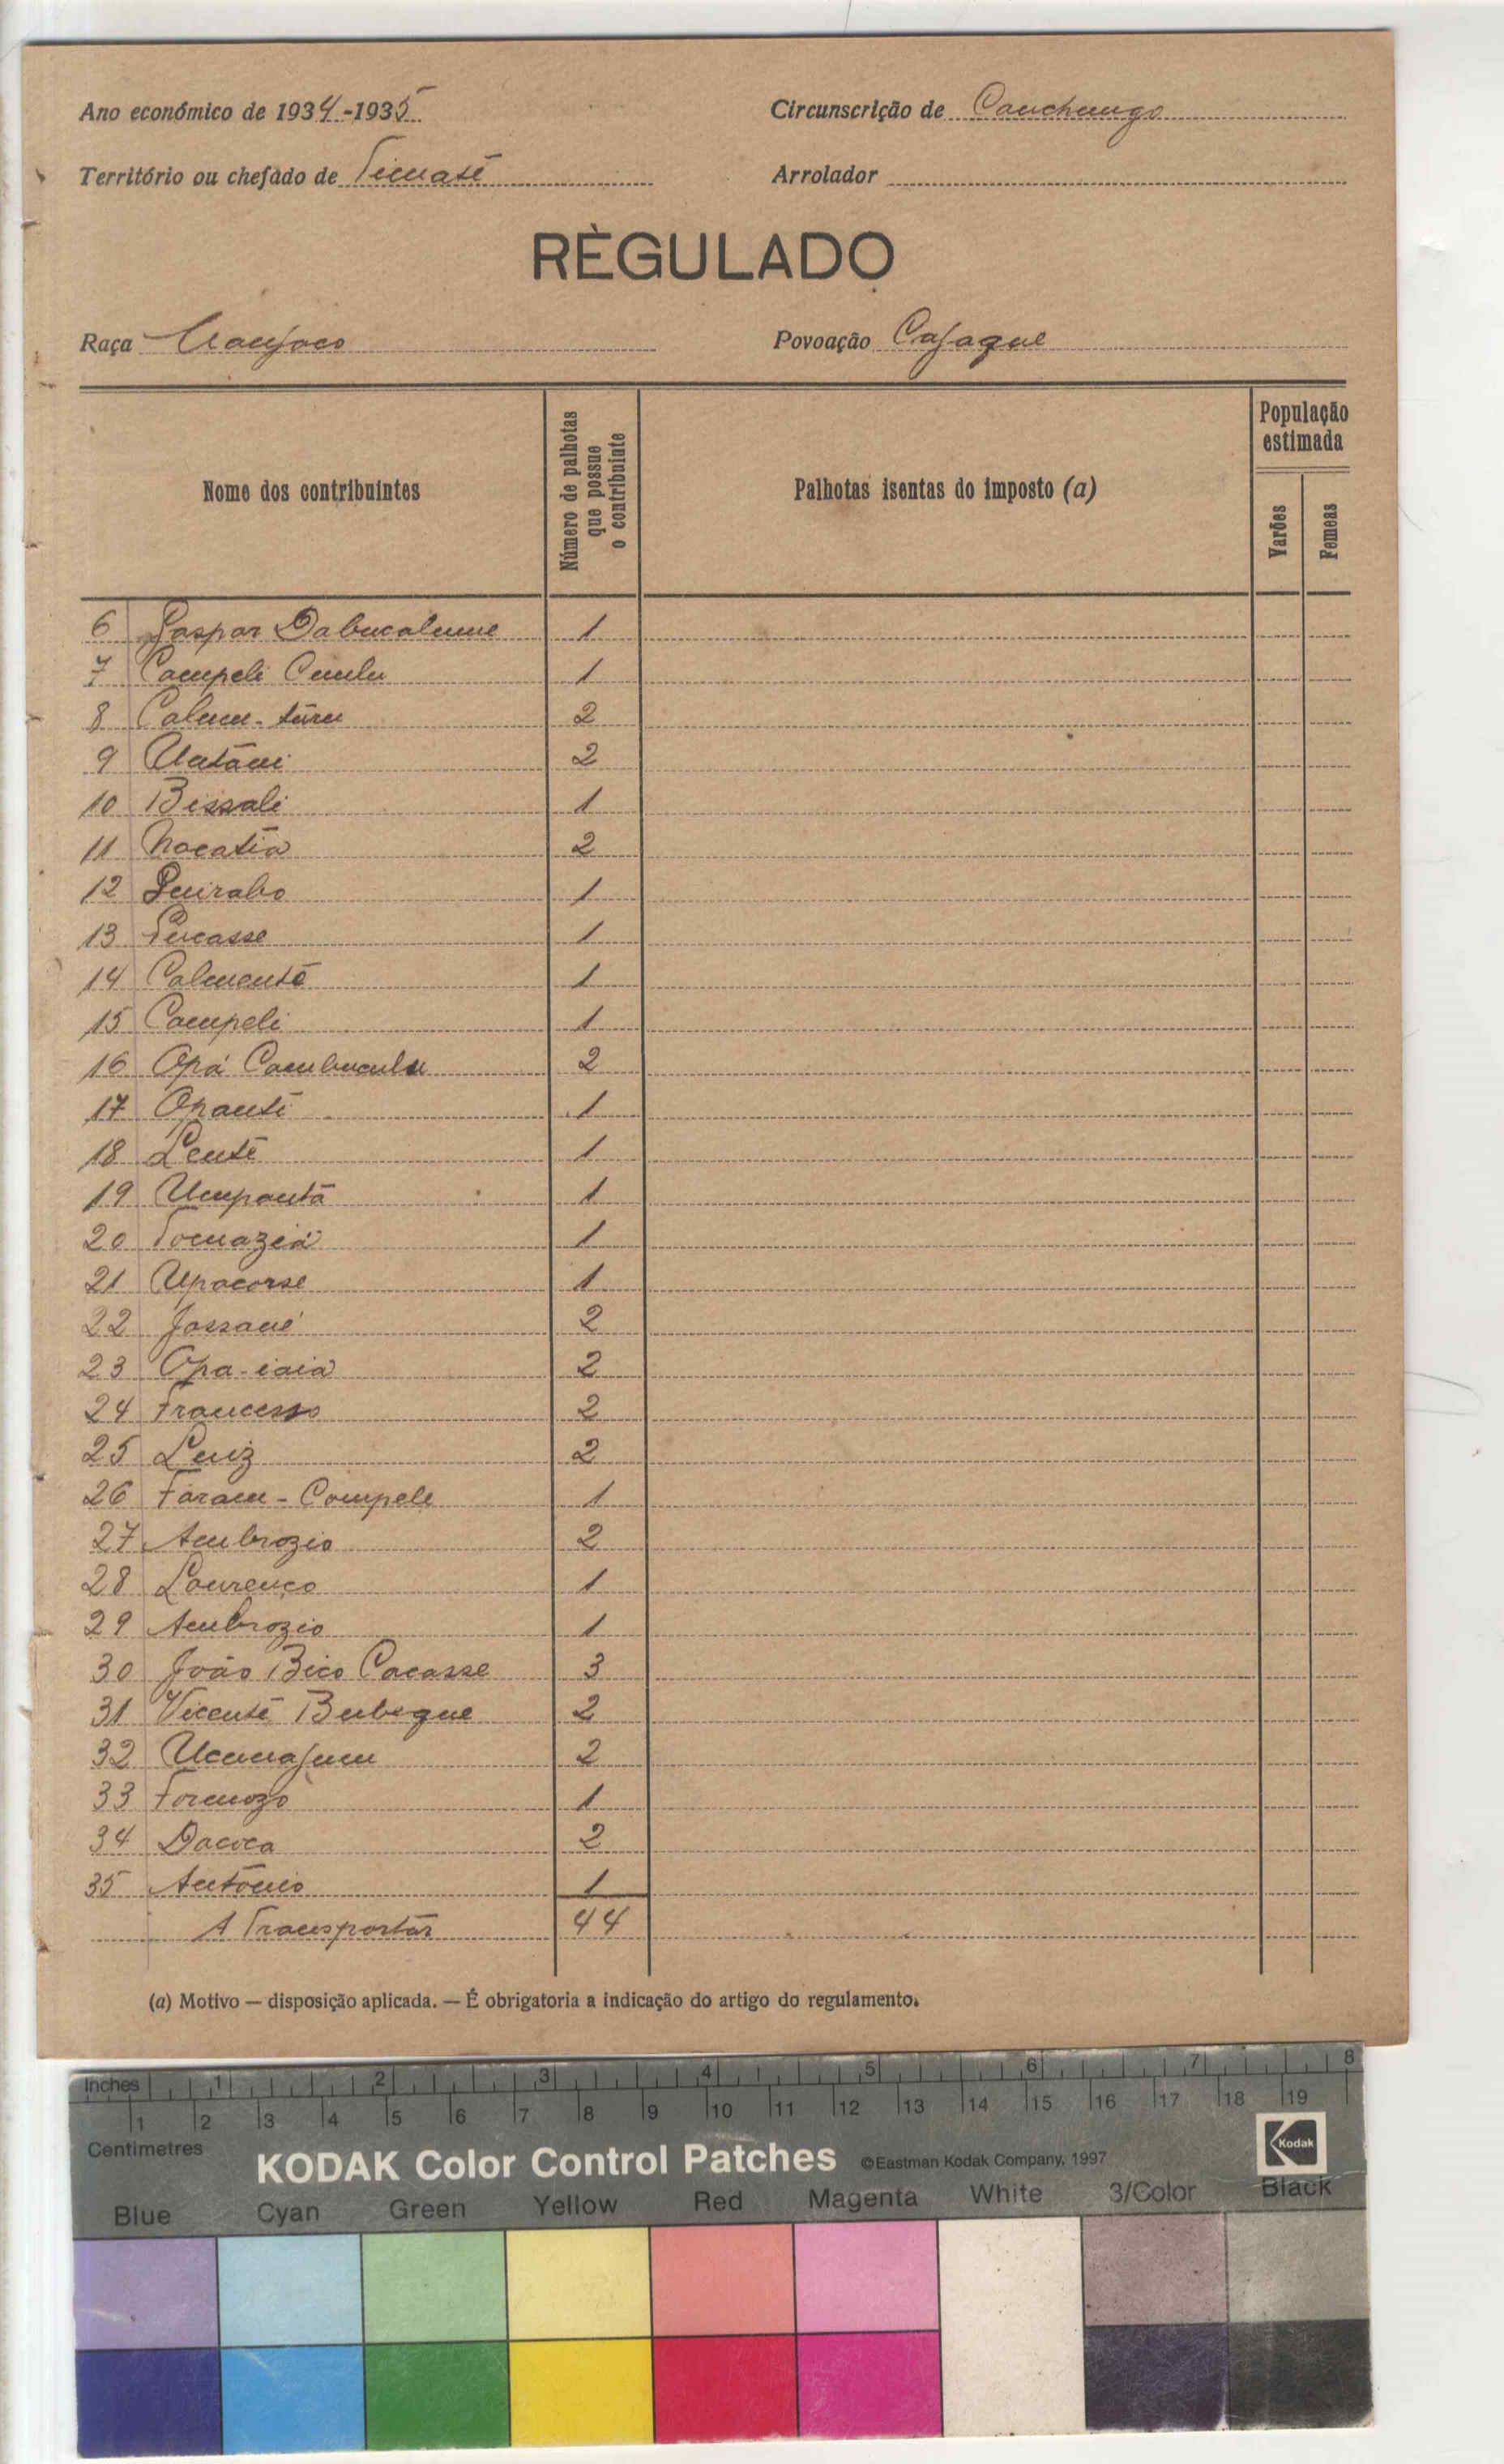 Ano económico de 1934-1935 Circunscrição de Canchungo
Território ou chefado de Timaté Arrolador
RÈGULADO
Raça Manjaco Povoação Cajaque
Nome dos contribuintes Número de palhotas que possue o contribuinte Palhotas isentas do imposto (a) População estimada Varões Femeas
6 Gaspar Dabucalume 1
7 Campeli 1
8 Calum-túru 2
9 2
10 Bissali 1
11 Nacatia 2
12 Quirabo 1
13 1
14 Calmenté 1
15 Campeli 1
16 Opá Cambuculu 2
17 Opanté 1
18 Lenté 1
19 Umpantá 1
20 Tomaziá 1
21 Upacorse 1
22 Jassané 2
23 Opa-iaia 2
24 Francesso 2
25 Luiz 2
26 Faram-Compele 1
27 Ambrozio 2
28 Lourenço 1
29 Ambrozio 1
30 João Bico Cacasse 3
31 Vicente Bubeque 2
32 2
33 Formozo 1
34 Dacoca 2
35 António 1
A Transportar 44
(a) Motivo — disposição aplicada. — É obrigatoria a indicação do artigo do regulamento.
Inches 1 2 3 4 5 6 7 8
1 2 3 4 5 6 7 8 9 10 11 12 13 14 15 16 17 18 19
Centimetres
KODAK Color Control Patches ©Eastman Kodak Company, 1997 Kodak
Blue Cyan Green Yellow Red Magenta White 3/Color Black